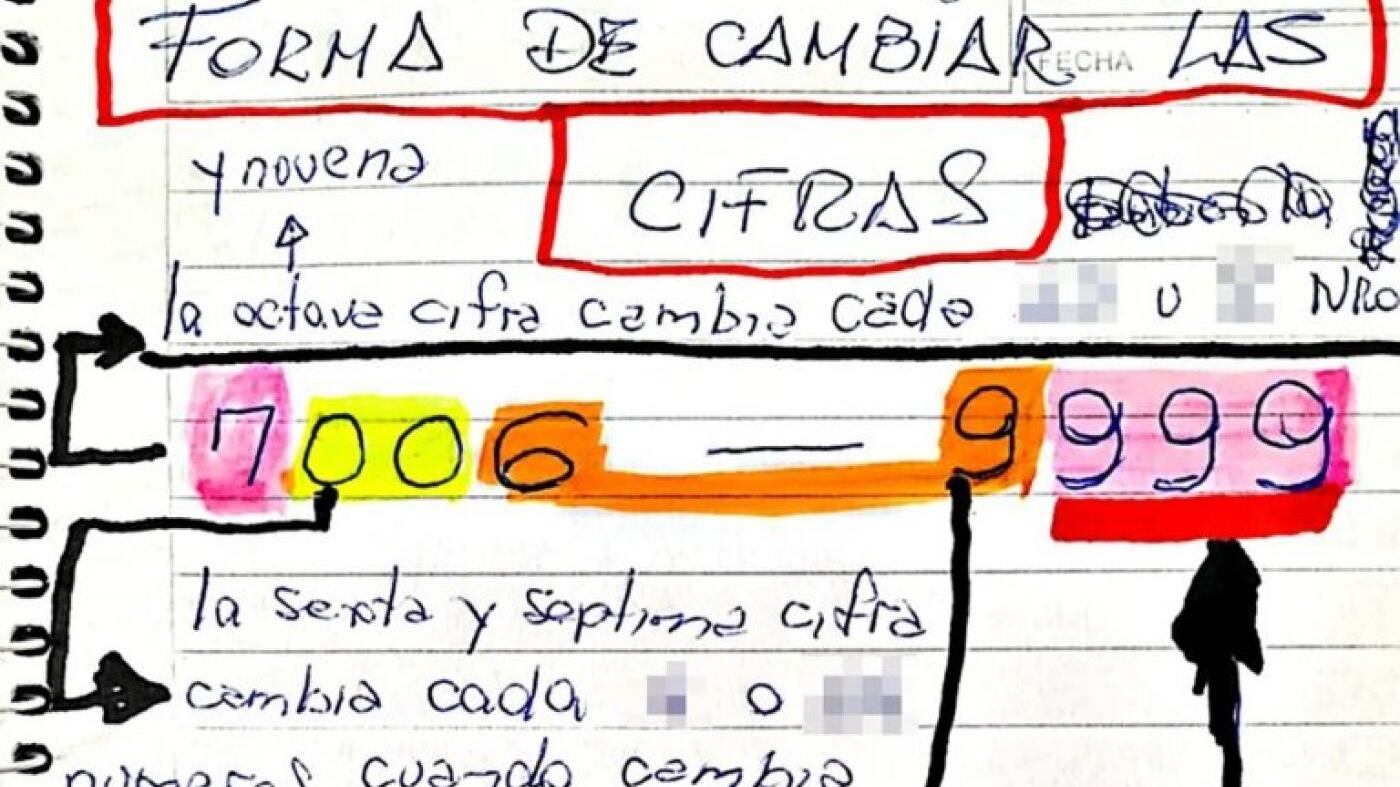 FORMA DE CAMBIAR LAS
FECHA
y novena
CIFRAS
la octava cifra cambia cada u NRO
7006 — 9999
la sexta y septima cifra
cambia cada o
numeros cuando cambia